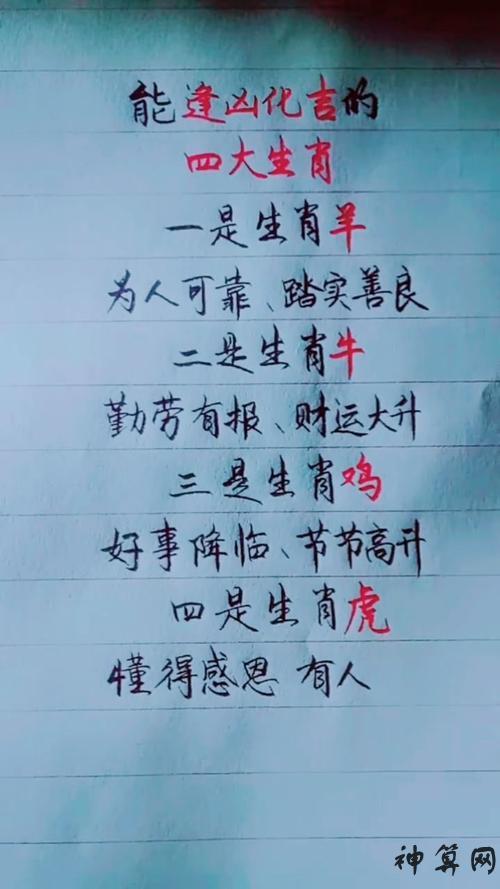 能逢凶化吉的
四大生肖
一是生肖羊
为人可靠、踏实善良
二是生肖牛
勤劳有报、财运大升
三是生肖鸡
好事降临、节节高升
四是生肖虎
懂得感恩 有人
神算网